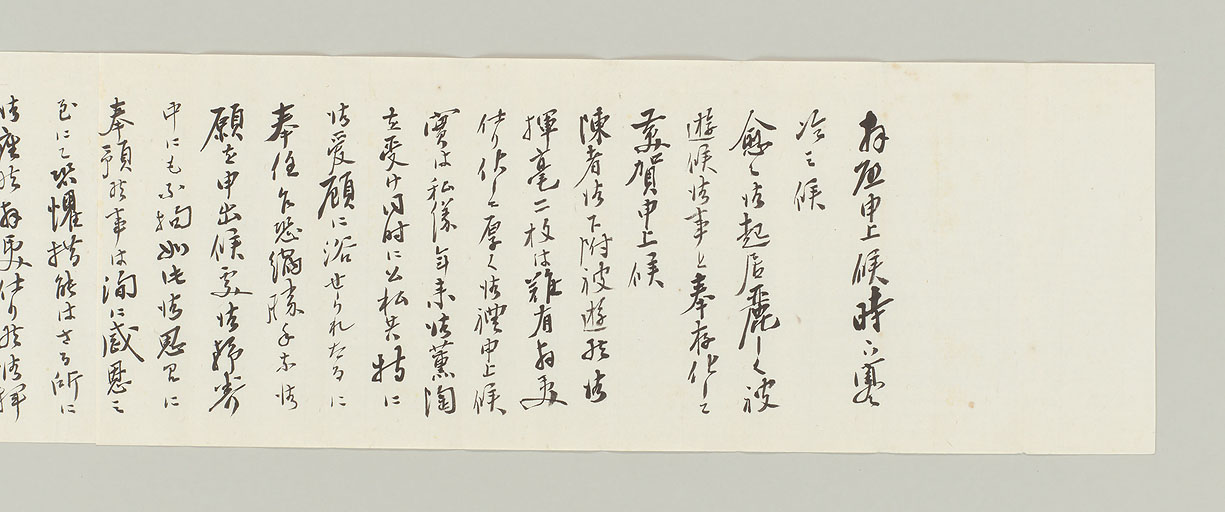 拝啓申上候時下寒
冷之候
愈々御起居麗しく被
遊候御事と奉存候
慶賀申上候
陳者御下附被遊候御
揮毫二枚は難有拝受
仕り候厚く御禮申上候
實は私儀年来御薫陶
を受け同時に公私共特に
御愛顧に浴せられたるに
奉任乍恐縮勝手な御
願を申出候處御静養
中にも不拘如此御恩召に
奉預候事は洵に感恩之
至にて恐懼措能はさる所に
御座候拝受仕り候御揮